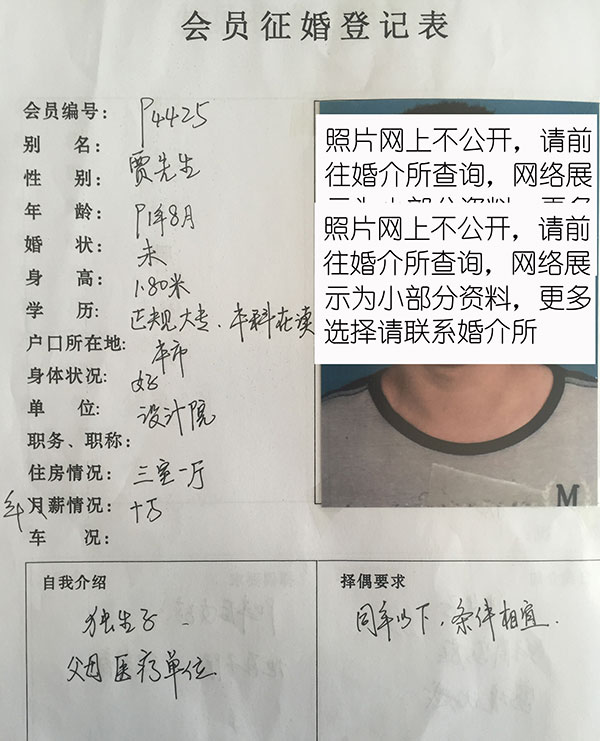 会员征婚登记表
会员编号: P4425
别 名: 贾先生
性 别:
年 龄: 91年8月
婚 状: 未
身 高: 1.80米
学 历: 正规大专、本科在读
户口所在地: 本市
身体状况: 好
单 位: 设计院
职务、职称:
住房情况: 三室一厅
年 月薪情况: 十万
车 况:
照片网上不公开，请前
往婚介所查询，网络展
示为小部分资料，更多
照片网上不公开，请前
往婚介所查询，网络展
示为小部分资料，更多
选择请联系婚介所
M
自我介绍
独生子
父母医疗单位
择偶要求
同年以下、条件相宜.